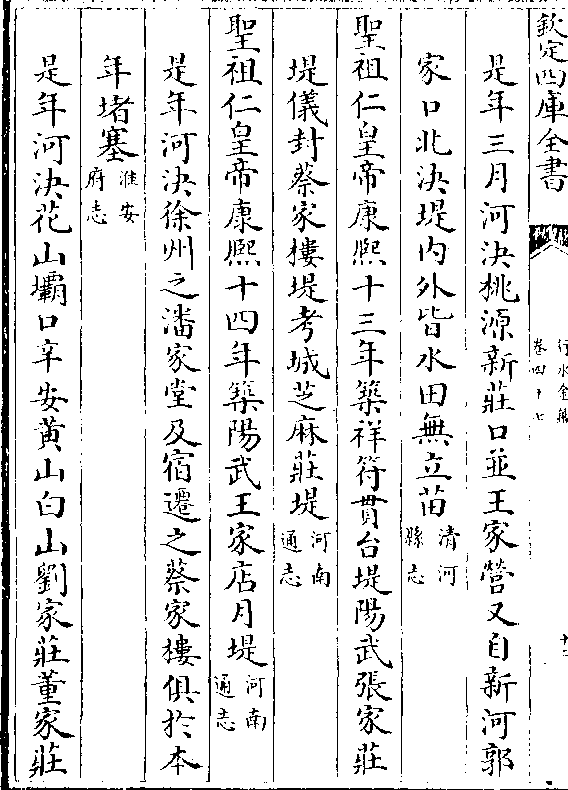 欽定四庫全書
行水金鑑
卷四十七
是年三月河決桃源新莊口並王家營又自新河郭
家口北決堤內外皆水田無立苗清河縣志
聖祖仁皇帝康熙十三年築祥符貫台堤陽武張家莊
堤儀封蔡家樓堤考城芝麻莊堤河南通志
聖祖仁皇帝康熙十四年築陽武王家店月堤河南通志
是年河決徐州之潘家堂及宿遷之蔡家樓俱於本
年堵塞淮安府志
是年河決花山壩口辛安黃山白山劉家莊董家莊